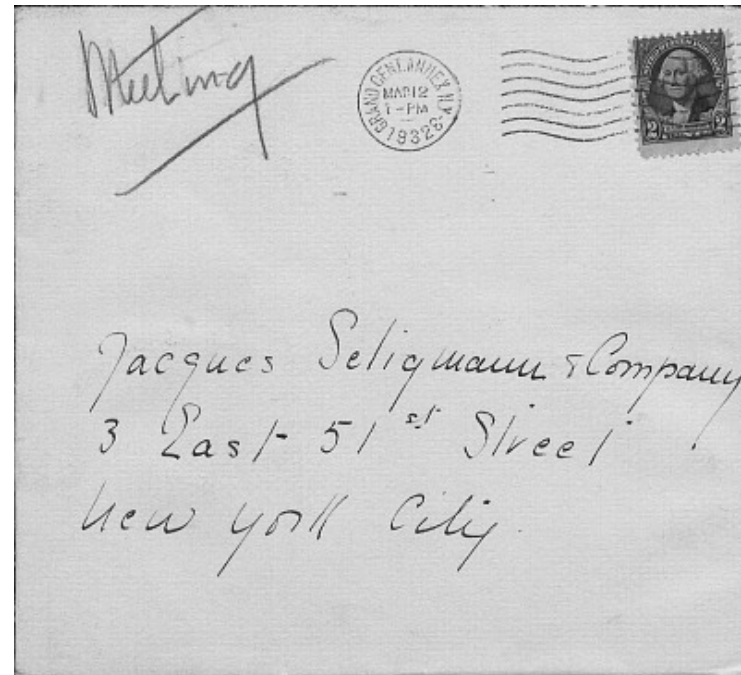 Meeting
GRAND CENT. ANNEX. N.Y.
MAR 12
1-PM
1932
2 2
Jacques Seligmann & Company
3 East 51st Street
New York City